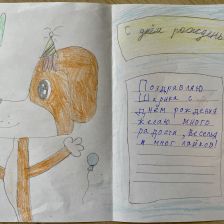 С днём рождень
Поздравляю
Шарика с
Днём рождения
желаю много
радости, веселья
и много лайков!